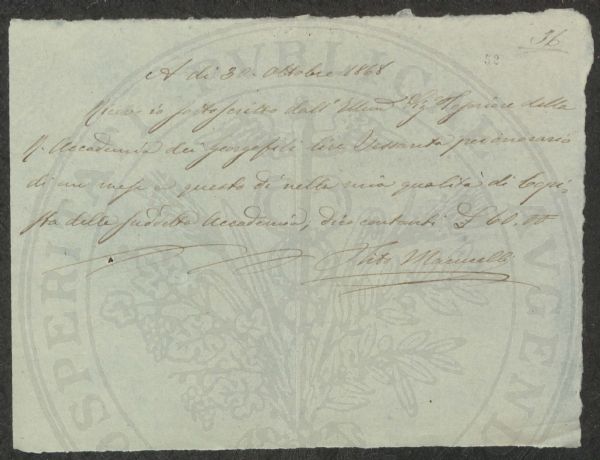 36
52
A di 30 Ottobre 1868
io sottoscritto dall' Illmo. Sig. Tesoriere della
R. Accademia dei georgofili lire Sessanta per onorario
di un mese a questo dì nella mia qualità di Copi-
sta della suddetta Accademia, dico contanti £ 60.00
PROSPERITATI PVBLICAE AVGENDAE